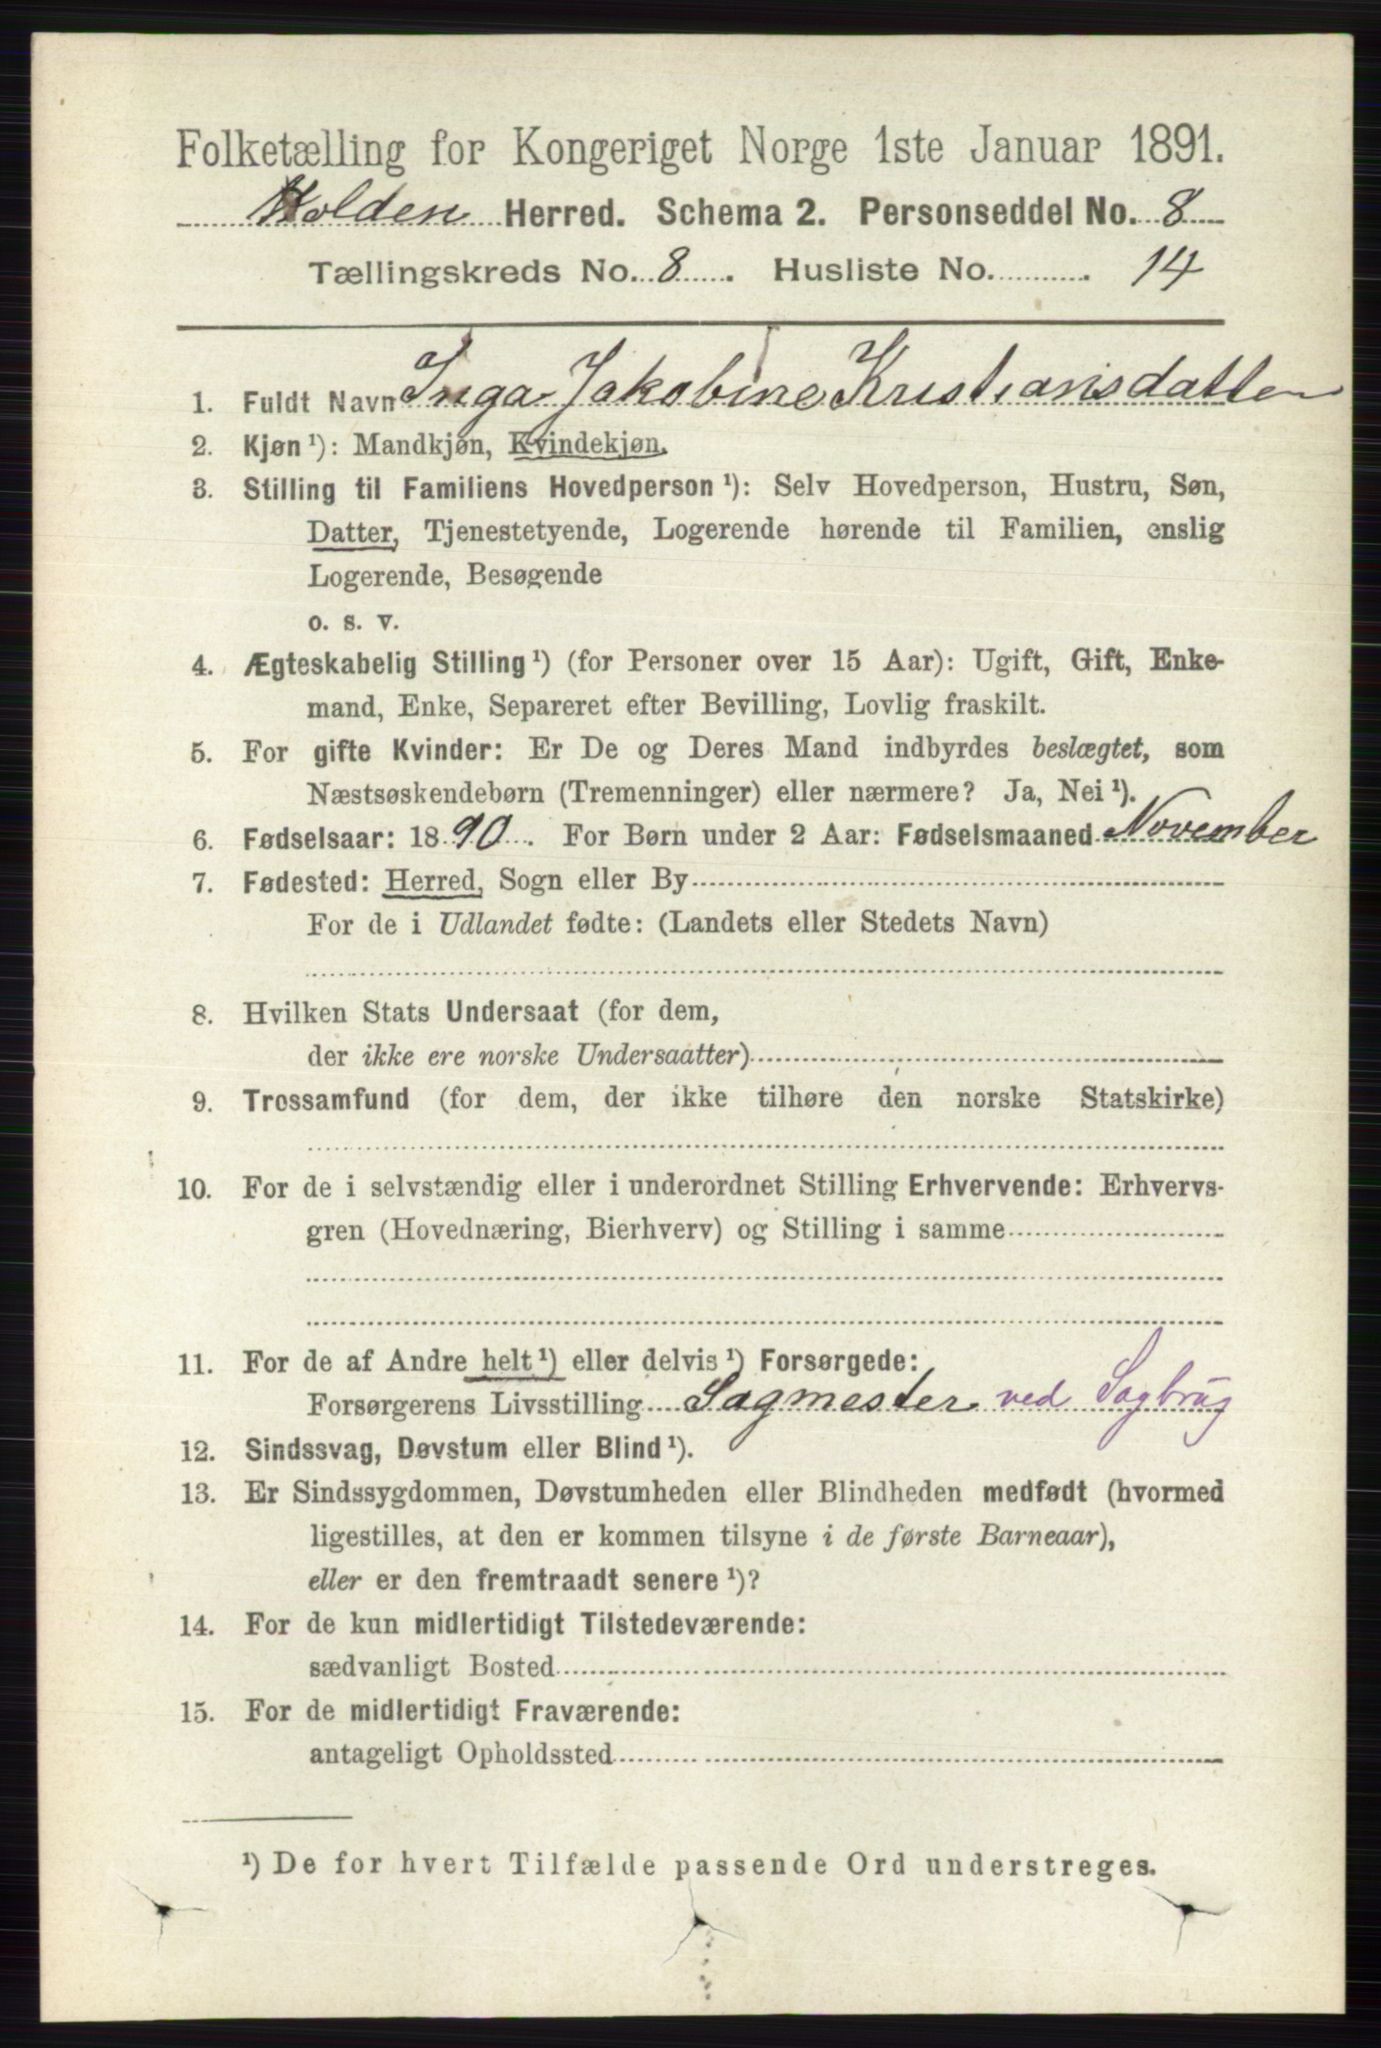 Folketælling for Kongeriget Norge 1ste Januar 1891.
Holden Herred. Schema 2. Personseddel No. 8
Tællingskreds No. 8. Husliste No. 14
1. Fuldt Navn Inga Jakobine Kristiansdatter
2. Kjøn ¹): Mandkjøn, Kvindekjøn.
3. Stilling til Familiens Hovedperson ¹): Selv Hovedperson, Hustru, Søn,
Datter, Tjenestetyende, Logerende hørende til Familien, enslig
Logerende, Besøgende
o. s. v.
4. Ægteskabelig Stilling ¹) (for Personer over 15 Aar): Ugift, Gift, Enke-
mand, Enke, Separeret efter Bevilling, Lovlig fraskilt.
5. For gifte Kvinder: Er De og Deres Mand indbyrdes beslægtet, som
Næstsøskendebørn (Tremenninger) eller nærmere? Ja, Nei ¹).
6. Fødselsaar: 1890. For Børn under 2 Aar: Fødselsmaaned November
7. Fødested: Herred, Sogn eller By
For de i Udlandet fødte: (Landets eller Stedets Navn)
8. Hvilken Stats Undersaat (for dem,
der ikke ere norske Undersaatter)
9. Trossamfund (for dem, der ikke tilhøre den norske Statskirke)
10. For de i selvstændig eller i underordnet Stilling Erhvervende: Erhvervs-
gren (Hovednæring, Bierhverv) og Stilling i samme
11. For de af Andre helt ¹) eller delvis ¹) Forsørgede:
Forsørgerens Livsstilling Sagmester ved Sagbrug
12. Sindssvag, Døvstum eller Blind ¹).
13. Er Sindssygdommen, Døvstumheden eller Blindheden medfødt (hvormed
ligestilles, at den er kommen tilsyne i de første Barneaar),
eller er den fremtraadt senere ¹)?
14. For de kun midlertidigt Tilstedeværende:
sædvanligt Bosted
15. For de midlertidigt Fraværende:
antageligt Opholdssted
¹) De for hvert Tilfælde passende Ord understreges.